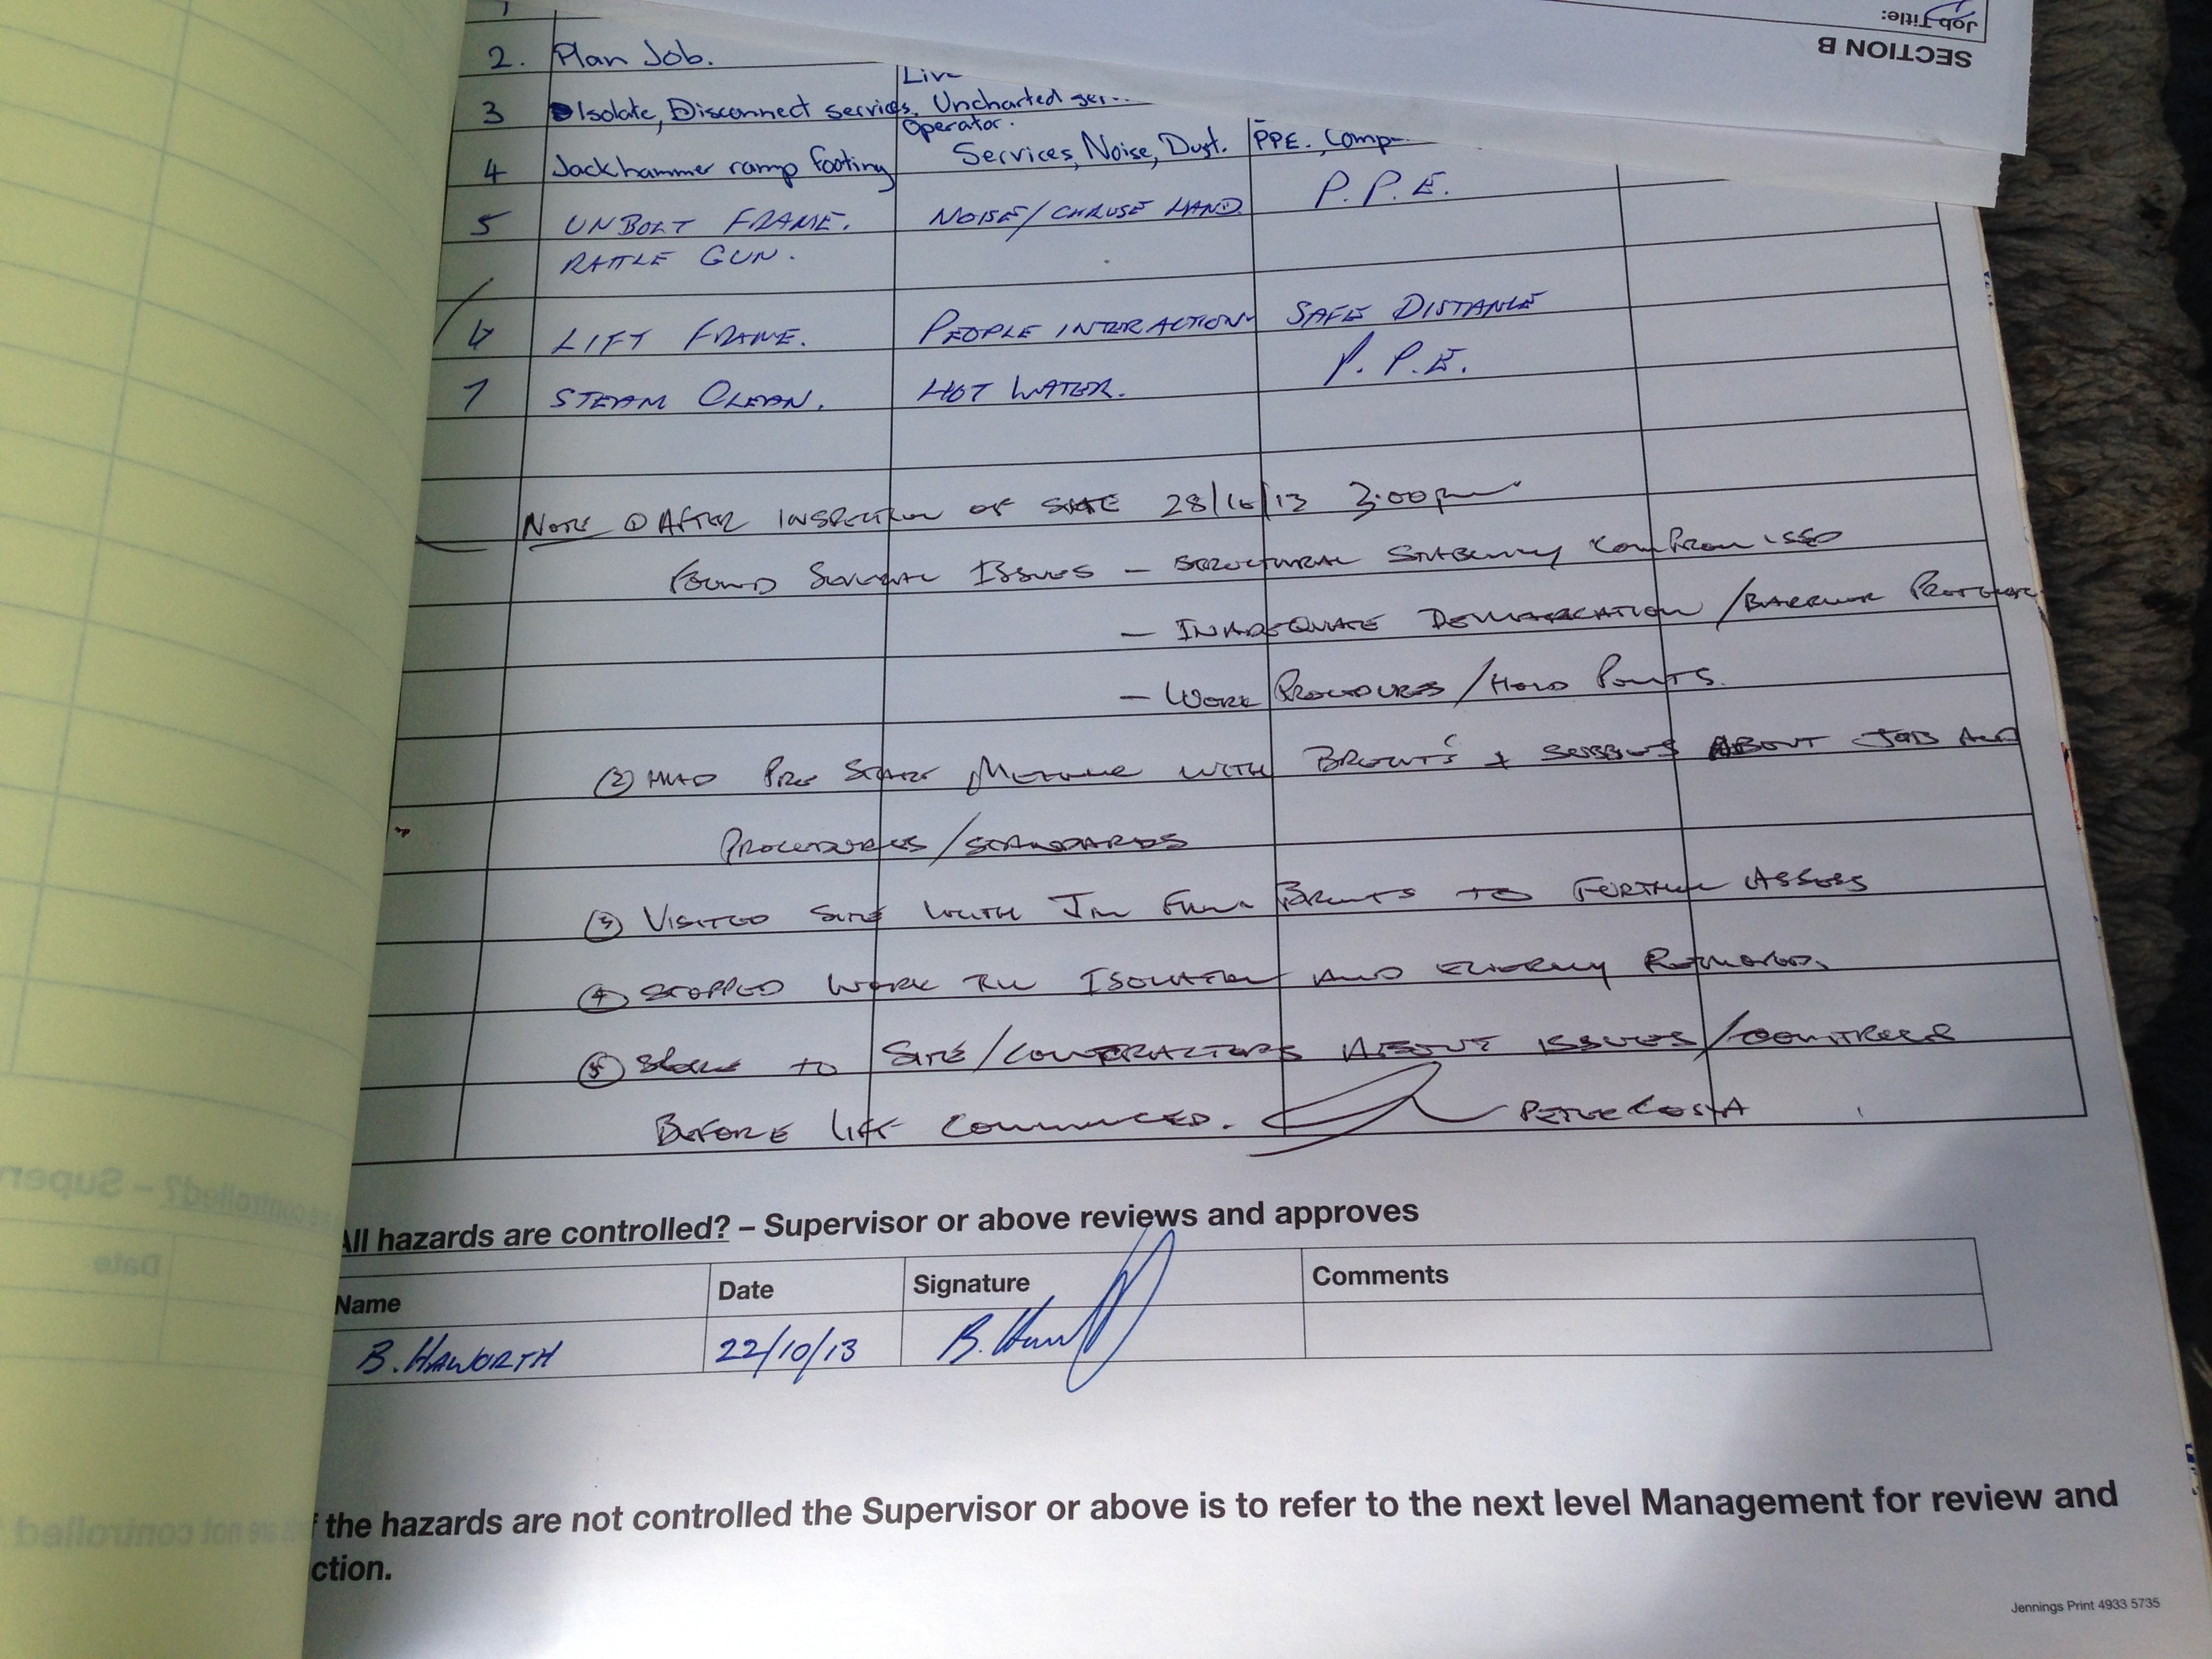 Job Title:
SECTION B
2. Plan Job.
Live
3 Isolate, Disconnect services, Uncharted ser
Operator.
4 Jackhammer ramp footing Services, Noise, Dust. PPE. Comp
5 UNBOLT FRAME. NOISE/CHRUSE HAND P.P.E.
RATTLE GUN.
6 LIFT FRAME. PEOPLE INTERACTION SAFE DISTANCE
7 STEAM CLEAN. HOT WATER. P.P.E.
NOTE ① AFTER INSPECTION OF SITE 28/10/13 3:00pm
FOUND SEVERAL ISSUES – STRUCTURAL STABILITY COMPROMISED
– INADEQUATE DEMARCATION / BARRIER
– WORK PROCEDURES / HOLD POINTS.
② HAD PRE START MEETING WITH + ABOUT JOB AND
PROCEDURES / STANDARDS
③ VISITED SITE WITH JIM FROM TO FURTHER ASSESS
④ STOPPED WORK TILL ISOLATION AND ENERGY REMOVED.
⑤ SPOKE TO SITE/CONTRACTORS ABOUT ISSUES/CONTROLS
BEFORE LIFT COMMENCED. PETER COSTA
All hazards are controlled? – Supervisor or above reviews and approves
Name Date Signature Comments
B. HAWORTH 22/10/13
the hazards are not controlled the Supervisor or above is to refer to the next level Management for review and
ction.
Jennings Print 4933 5735